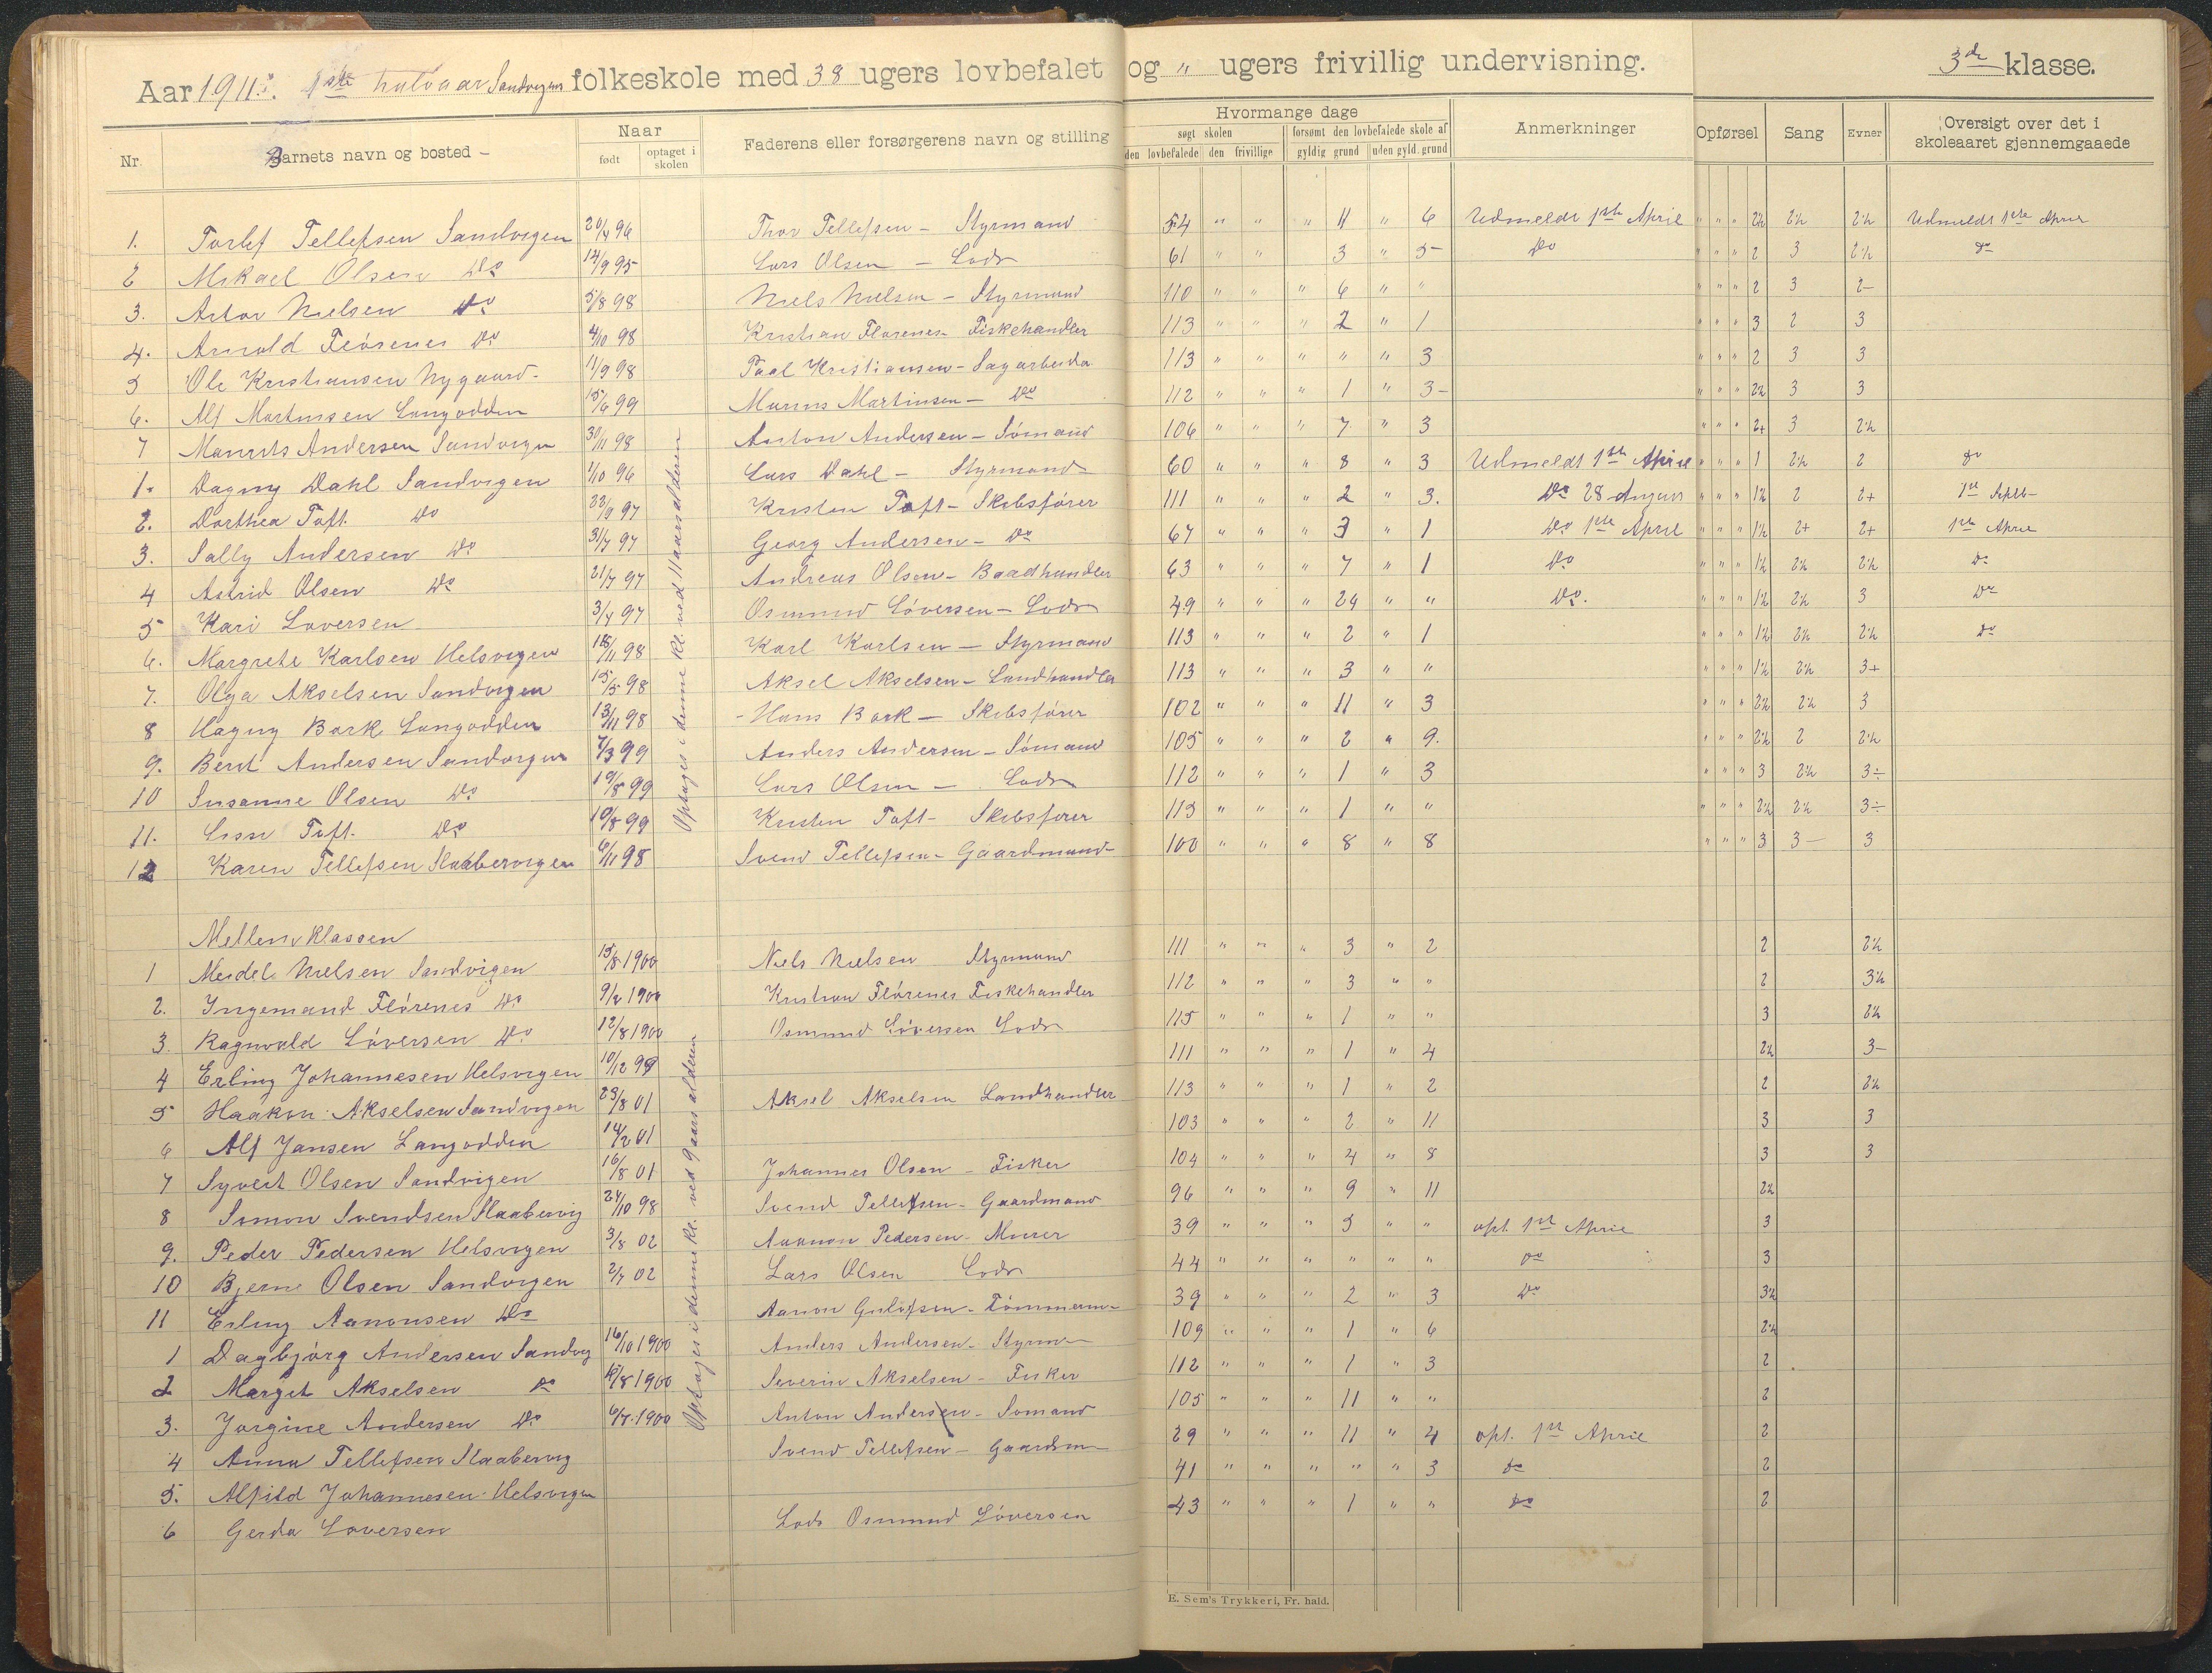 Aar 1911. 1ste halvaar Sandvigens folkeskole med 38 ugers lovbefalet og " ugers frivillig undervisning. 3die klasse.
Nr. Barnets navn og bosted – Naar født optaget i skolen Faderens eller forsørgerens navn og stilling Hvormange dage søgt skolen den lovbefalede den frivillige forsømt den lovbefalede skole af gyldig grund uden gyld. grund Anmerkninger Opførsel Sang Evner Oversigt over det i skoleaaret gjennemgaaede
1. Torlef Tellefsen Sandvigen 20/4 96 Thor Tellefsen – Styrmand 54 " " " 11 " 6 Udmeldt 1ste April " " " 2½ 2½ 2½ Udmeldt 1ste April
2 Mikael Olsen Do 14/9 95 Lars Olsen – Lods 61 " " 3 " 5 Do " " " 2 3 2½ Do
3. Artor Nielsen Do 5/8 98 Niels Nielsen – Styrmand 110 " " " 6 " " " " " 2 3 2-
4. Arnold Flørenes Do 4/10 98 Kristian Flørenes – Fiskehandler 113 " " " 2 " 1 " " " 3 2 3
5 Ole Kristiansen Nygaard 11/9 98 Paal Kristiansen – Sagarbeider 113 " " " " " 3 " " " 2 3 3
6. Alf Martinsen Langodden 15/6 99 Marius Martinsen – Do 112 " " " 1 " 3 " " " 2½ 3 3
7 Maurits Andersen Sandvigen 30/11 98 Anton Andersen – Sømand 106 " " " 7 " 3 " " " 2+ 3 2½
1. Dagny Dahl Sandvigen 1/10 96 Lars Dahl – Styrmand 60 " " " 8 " 3 Udmeldt 1ste April " " " 1 2½ 2 Do
2. Dorthea Toft Do 22/9 97 Kristen Toft – Skibsfører 111 " " " 2 " 3. Do 28 August " " " 1½ 2 2+ 1st Septb
3. Sally Andersen Do 31/7 97 Georg Andersen – Do 67 " " " 3 " 1 Do 1ste April " " " 1½ 2+ 2+ 1ste April
4 Astrid Olsen Do 21/7 97 Andreas Olsen – Baadhandler 63 " " " 7 " 1 Do " " " 1½ 2½ 2½ Do
5 Kari Løversen 3/4 97 Osmund Løversen – Lods 49 " " " 24 " " Do. " " " 1½ 2½ 3 Do
6. Margrete Karlsen Helsvigen 18/11 98 Karl Karlsen – Styrmand 113 " " " 2 " 1 " " " 1½ 2½ 2½ Do
7. Olga Akselsen Sandvigen 15/5 98 Aksel Akselsen – Landhandler 113 " " " 3 " " " " " 1½ 2½ 3+
8 Hagny Bork Langodden 13/11 98 Hans Bork – Skibsfører 102 " " " 11 " 3 " " " 2½ 2½ 3
9. Berit Andersen Sandvigen 7/3 99 Anders Andersen – Sømand 105 " " " 2 " 9. " " " 2½ 2 2½
10 Susanne Olsen Do 10/8 99 Lars Olsen – Lods 112 " " " 1 " 3 " " " 3 2½ 3÷
11. Lissi Toft Do 10/8 99 Kristen Toft – Skibsfører 113 " " " 1 " " " " " 2½ 2½ 3÷
12 Karen Tellefsen Skaabervigen 6/11 98 Svend Tellefsen – Gaardmand 100 " " " 8 " 8 " " " 3 3– 3
Optages i denne kl ved 11 aarsalderen
Mellemklassen
1 Meidel Nielsen Sandvigen 15/8 1900 Niels Nielsen Styrmand 111 " " " 3 " 2 2 2½
2. Ingemand Flørenes Do 9/2 1900 Kristian Flørenes Fiskehandler 112 " " " 3 " " 2 3½
3. Ragnvald Løversen Do 12/8 1900 Osmund Løversen Lods 115 " " " 1 " " 3 2½
4 Erling Johannesen Helsvigen 10/12 99 111 " " " 1 " 4 2½ 3-
5 Haakon Akselsen Sandvigen 23/8 01 Aksel Akselsen Landhandler 113 " " " 1 " 2 2 2½
6 Alf Jansen Langodden 14/2 01 103 " " " 2 " 11 3 3
7 Syvert Olsen Sandvigen 16/8 01 Johannes Olsen – Fisker 104 " " " 4 " 8 3 3
8 Simon Svendsen Skaabervig 24/10 98 Svend Tellefsen – Gaardmand 96 " " " 9 " 11 2½
9. Peder Pedersen Helsvigen 3/8 02 Aanon Pedersen – Murer 39 " " " 3 " " opt. 1st April 3
10 Bjerne Olsen Sandvigen 2/7 02 Lars Olsen Lods 44 " " " " " " Do 3
11 Erling Aanonsen Do Aanon Gulofsen – Tømmerm. 39 " " " 2 " 3 Do 3½
1 Dagbjørg Andersen Sandvig 16/10 1900 Anders Andersen – Styrm. 109 " " " 1 " 6 2½
2 Margit Akselsen Do 15/8 1900 Severin Akselsen – Fisker 112 " " " 1 " 3 2
3. Jørgine Andersen Do 6/7 1900 Anton Andersen – Sømand 105 " " " 11 " " 2
4 Anna Tellefsen Skaabervig Svend Tellefsen – Gaardm. 29 " " " 11 " 4 opt. 1st April 2
5. Alfild Johannesen Helsvigen 41 " " " " " 3 Do 2
6 Gerda Løversen Lods Osmund Løversen 43 " " " 1 " " Do 2
Optages i denne kl. ved 9 aars alderen
E. Sem's Trykkeri, Fr. hald.